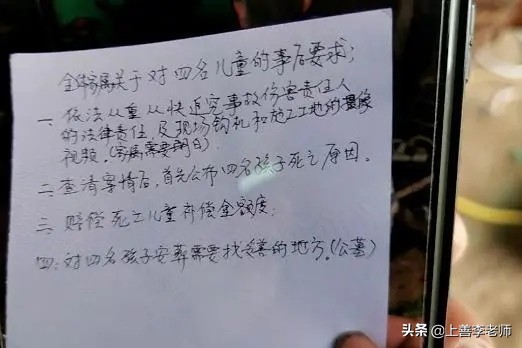 全体家属关于对四名儿童的事后要求;
一、依法从重从快追究事故伤害责任人
的法律责任,及现场钩机和施工工地的摄像
视频。(家属需要明白).
二、查清案情后,首先公布四名孩子死亡原因。
三、赔偿死亡儿童补偿金额度.
四:对四名孩子安葬需要找妥善的地方.(公墓)
头条 @上善李老师